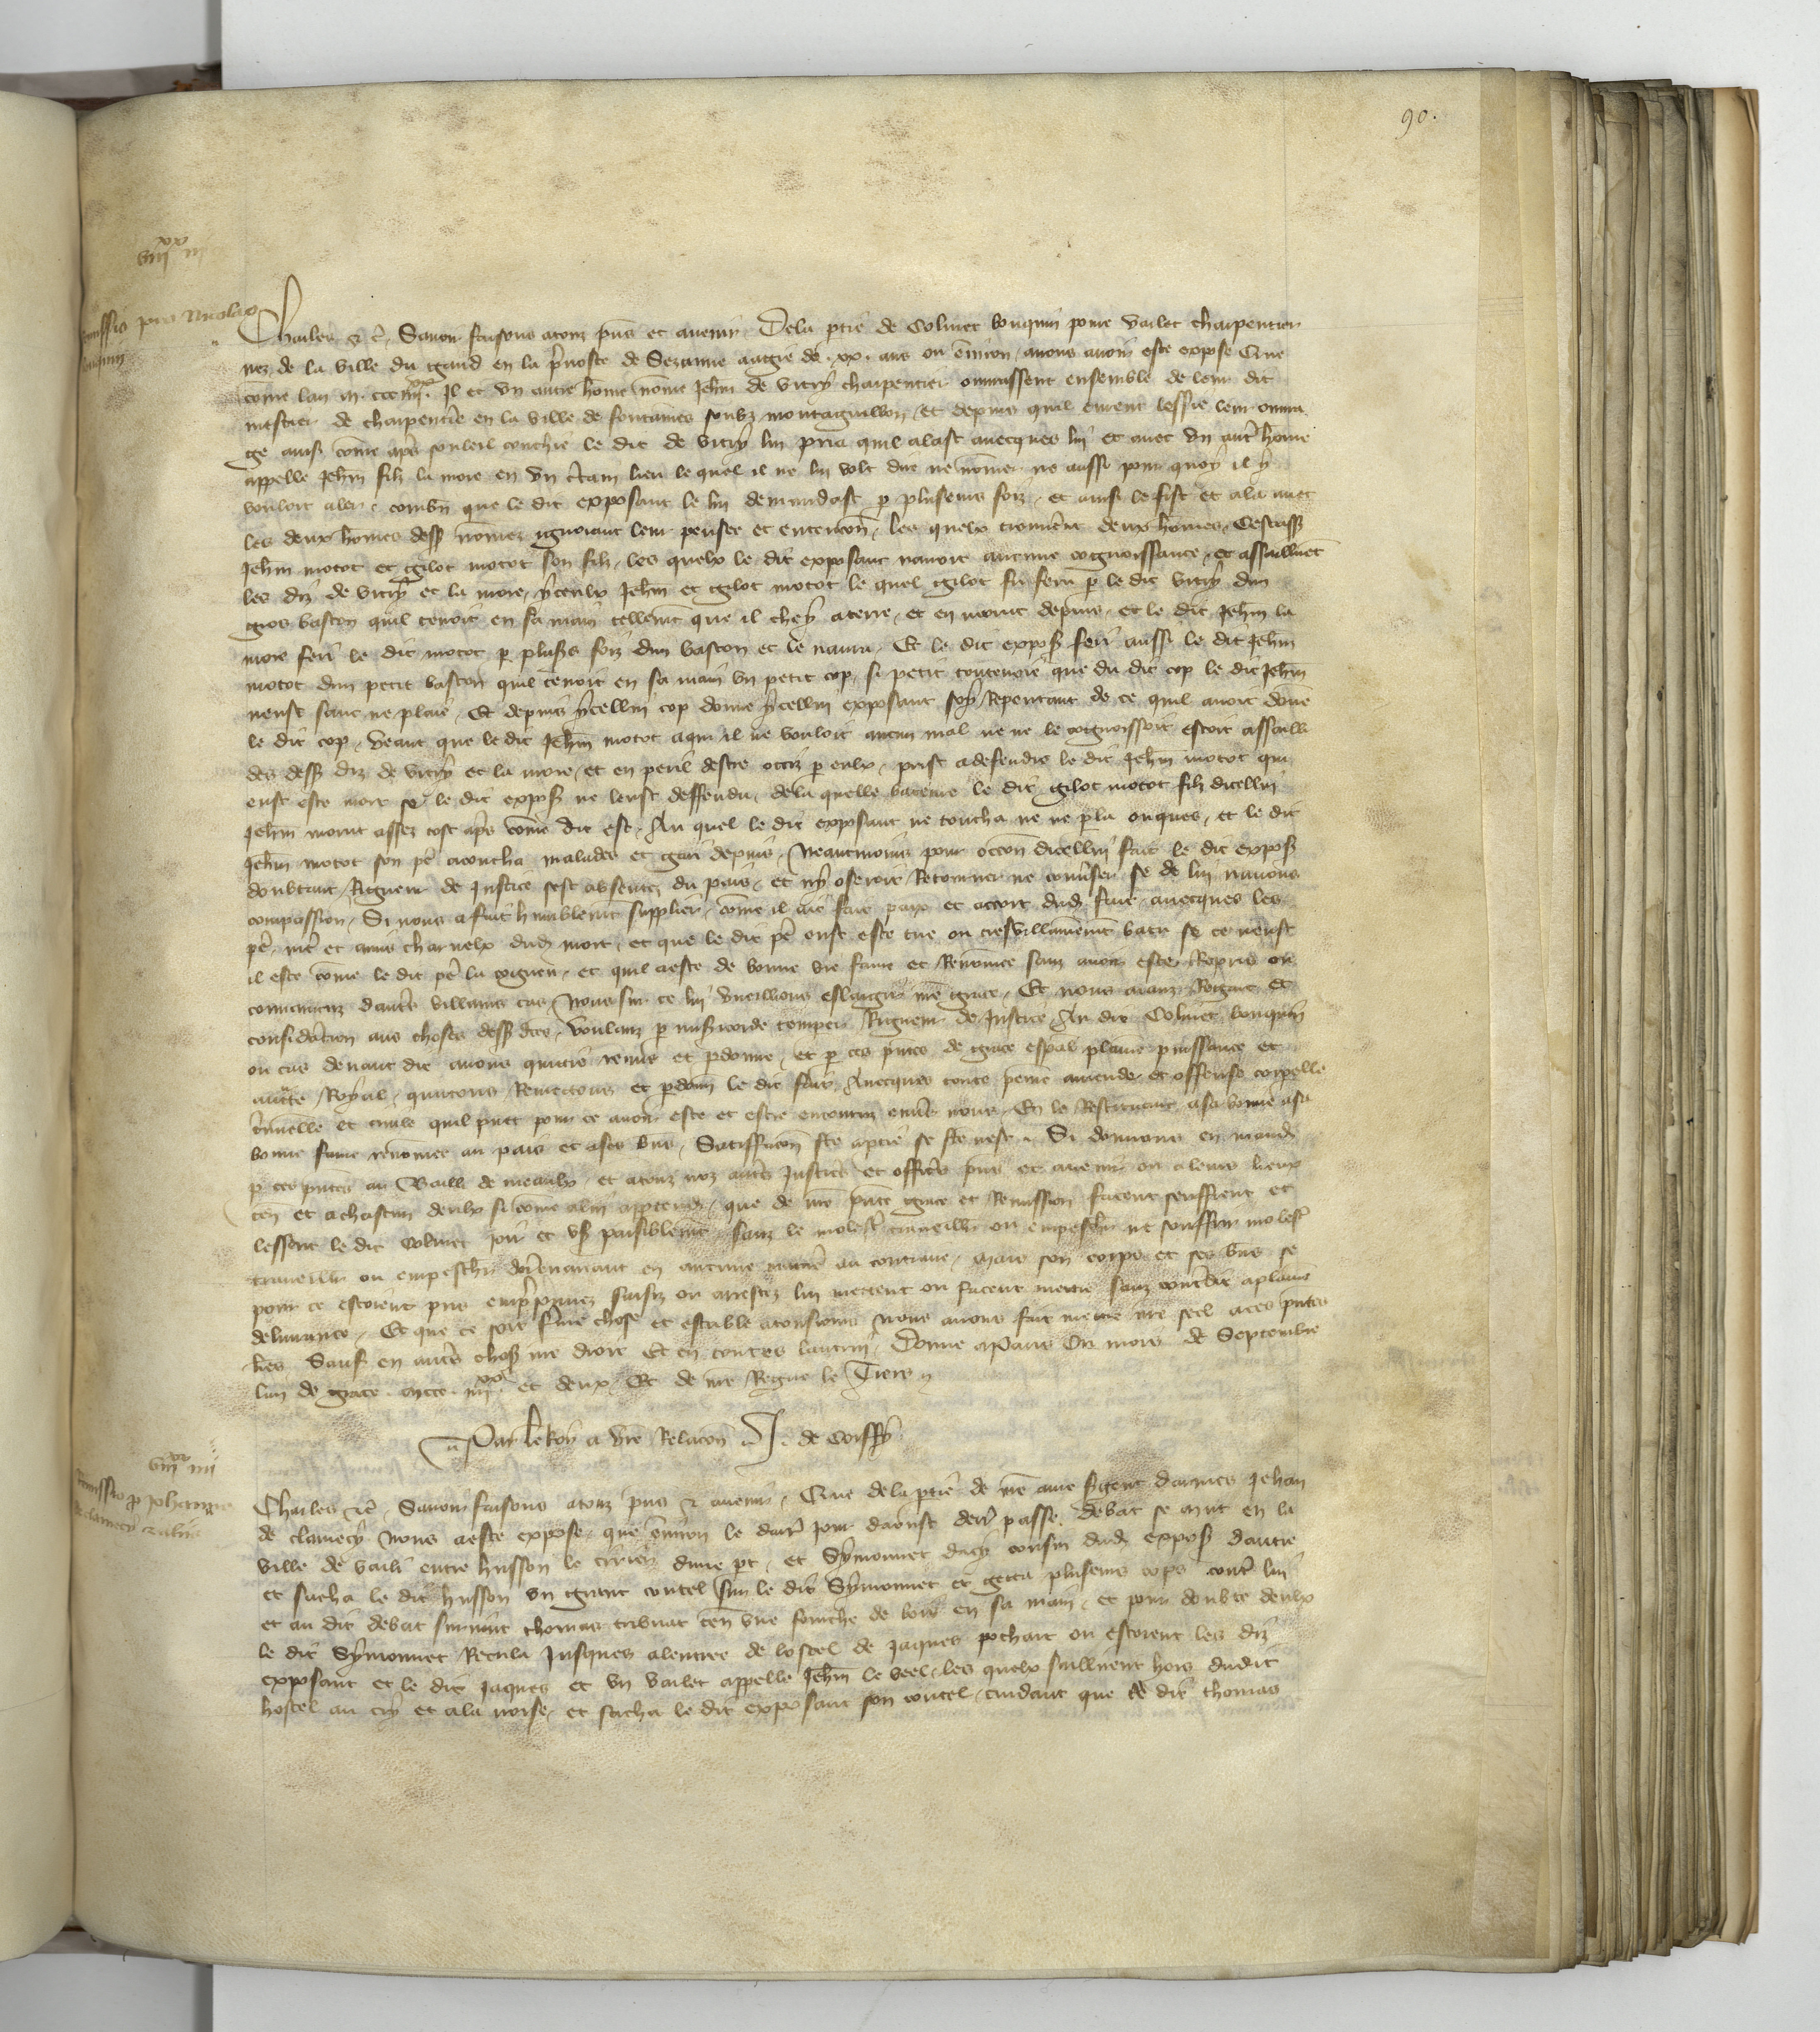 90.
viii xx iii
Remissio pro Nicolao
bouquin
Charles &c. Savoir faisons a touz pns et avenir De la ptie de Colinet bouquin povre varlet charpentier
nez de la ville du gaud en la prevoste de Sezanne aagie de .xx. ans ou environ, avons avoir este expose Que
come lan m. ccc iiii xx Il et un autre home nome Jehn de vitry charpentier ouvrassent ensemble de leur dit
mestier de charpentie en la ville de fontaines soubz montaguillon, et depuis quil eurent lessie leur ouvra
ge ainsi come aps souleil couchie le dit de vitry lui pria quil alast avecques lui et avec un aut home
appelle Jehn filz la more en un ctain lieu le quel il ne lui volt dire ne nomer ne aussi pour quoy il y
vouloit aler, combn que le dit exposant le lui demandast p plusieurs foiz, et ainsi le fist et ala avec
les deux homes dess nomez ignorant leur pensee et entencon, les quelx trouvent deux homes, Cestass
Jehn motot et gilot motot son filz, les quelx le dit exposant navoit aucune cognoissance, et assaillirent
les diz de vitry et la more, yceulx Jehn et gilot motot le quel gilot fu feru p le dit vitry dun
gros baston quil tenoit en sa main tellemt que il chey a terre, et en morut depuis, et le dit Jehn la
more feri le dit motot p pluss foiz dun baston et le navra, Et le dit expos feri aussi le dit Jehn
motot dun petit baston quil tenoit en sa main un petit cop, si petit que du dit cop le dit Jehn
neust sanc ne plaie, Et depuis ycellui cop donne ycellui exposant soy Repentant de ce quil avoit done
le dit cop, veant que le dit Jehn motot a qui il ne vouloit aucun mal ne ne le cognoissoit estoit assailli
des dess diz de vitry et la more, et en peril destre occiz p eulx, prist a defendre le dit Jehn motot qui
eust este mort se le dit expos ne leust deffendu, de la quelle bateure le dit gilot motot filz dicellui
Jehn morut assez tost aps come dit est, Au quel le dit exposant ne toucha ne ne pla onques, et le dit
Jehn motot son pe acoucha malades et gari depuis, Neantmoins pour occon dicellui fait le dit expos
doubtant Rigueur de Justice sest absentez du pais, et ny oseroit Retourner ne convser se de lui navions
compassion, Si nous a fait humblemt supplier, come il ait fait paix et accort dud fait avecques les
pe, me et amis charnelx dud mort, et que le dit pe eust este tue ou tresvillainemt batu se ce neust
il este come le dit pe la, et quil a este de bonne vie fame et Renomee sanz avoir este Repris ou
convaincuz dauts villains cas, Nous sur ce lui vueillons eslargir nre grace, Et nous aianz Regart et
consideration aus choses dess dtes, voulanz p misicorde temper Rigueur de Justice Au dit Colinet bouquin
ou cas devant dit avons quictie remis et pdonne, et p ces pntes de grace espal plaine puissance et
auttte Royal, quictons Remettons et pdonn le dit fait, Avecques toute peine amende et offense corporelle
criminelle et civile quil puet pour ce avoir este et estre encouruz envs nous, Et le Restituons a sa bonne
bonne fame renomee au pais et a ses bns, Satisfacon fte a ptie se fte nest, Si donnons en mandt
p ces pntes au Bailli de meaulx, et a touz noz auts Justics et offics pns et avenir ou a leurs lieux
ten et a chascun deulx si come a lui apptendr, que de nre pnte grace et Remission facent seuffrent et
lessent le dit Colinet joir et us paisiblemt, sanz le molest traveillr ou empeschr ne souffrir molest
traveillr ou empeschr dorenavant en aucune manie au contraire, mais son corps et ses bns se
pour ce estoient pris empsonnez saisiz ou arrestez lui mettent ou facent mettre sanz contdit a plaine
delivrance, Et que ce soit ferme chose et estable a tousjours Nous avons fait mettre nre seel a ces pntes
lres, Sauf en auts choses nre droit Et en toutes lautrui, Donne a Paris Ou mois de Septembre
lan de grace mccc iiii xx et deux Et de nre Regne le Tiers
Par le Roy a vre Relacon J. de Coiffy
viii xx iiii
Remissio p Johanne
de clamecy & aliis
Charles &c. Savoir faisons a touz pns & avenir, Que de la ptie de nre ame sgent darmes Jehan
de clamecy Nous a este expose, que environ le jour daoust derr passe, debat se mut en la
ville de vaili entre husson le cirier dune pt, et Symonnet cousin dud expos dautre
et sacha le dit husson un grant coutel sur le dit Symonnet et getta plusieurs cops cont lui
et au dit debat survint thomas ten une fourche de bois en sa main, et pour doubte deulx
le dit Symonnet Recula Jusques a lentree de lostel de Jaques pochart ou estoient les diz
exposant et le dit Jaques et un varlet appelle Jehn le veel, les quelx saillirent hors dudit
hostel au cry et a la noise, et sacha le dit exposant son coutel, cuidant que le dit thomas